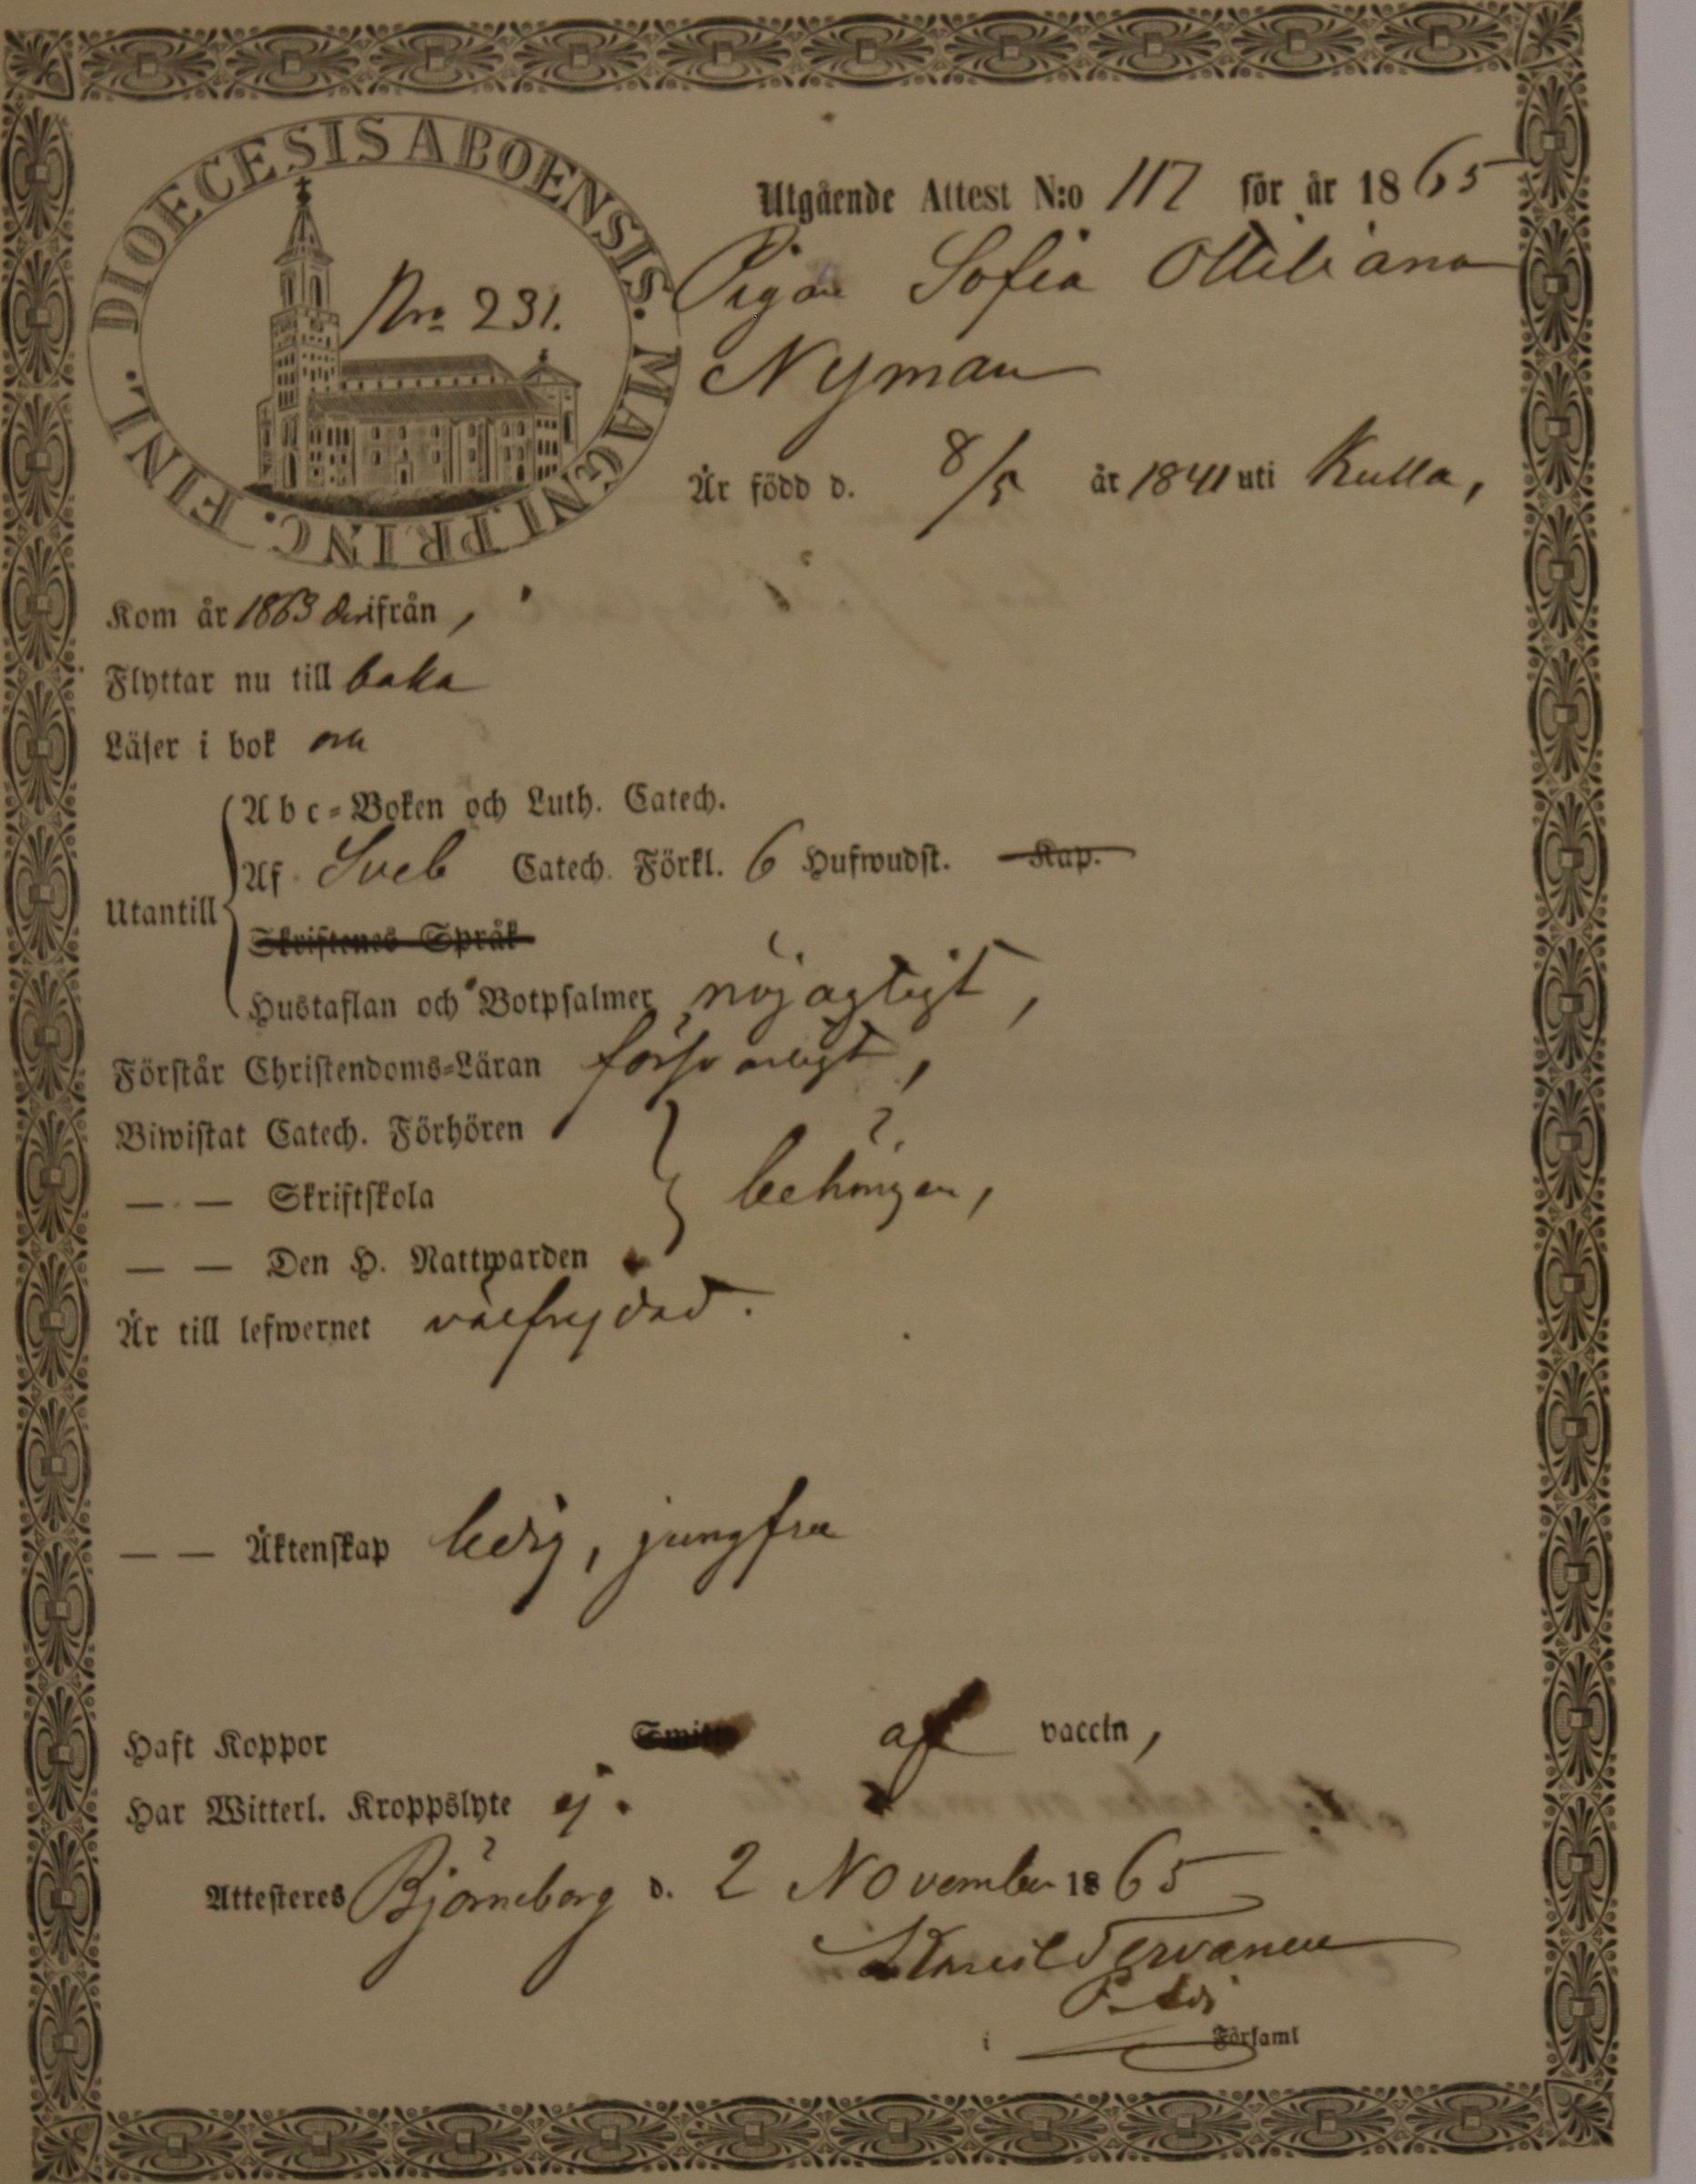 DIOECESIS ABOENSIS. MAGNI PRINC. FINL.
Nro 231.
Utgående Attest N:o 117 för år 1865
Pigan Sofia Ottiliana
Nyman
Är född d. 8/5 år 1841 uti Kulla,
Kom år 1863 derifrån,
Flyttar nu till baka
Läser i bok
Utantill
Abc-Boken och Luth. Catech.
Af Sveb Catech. Förkl. 6 Hufwudst. Kap.
Skriftenes Språk
Hustaflan och Botpsalmer nöjagtigt,
Förstår Christendoms-Läran försvarligt,
Biwistat Catech. Förhören
— — Skriftskola behörigen,
— — Den H. Nattwarden
Är till lefwernet välfrejdad.
— — Äktenskap ledig, jungfru
Haft Koppor Smitt af vaccin,
Har Witterl. Kroppslyte ej.
Attesteres Björneborg d. 2 November 1865
Tervanen
i Församl